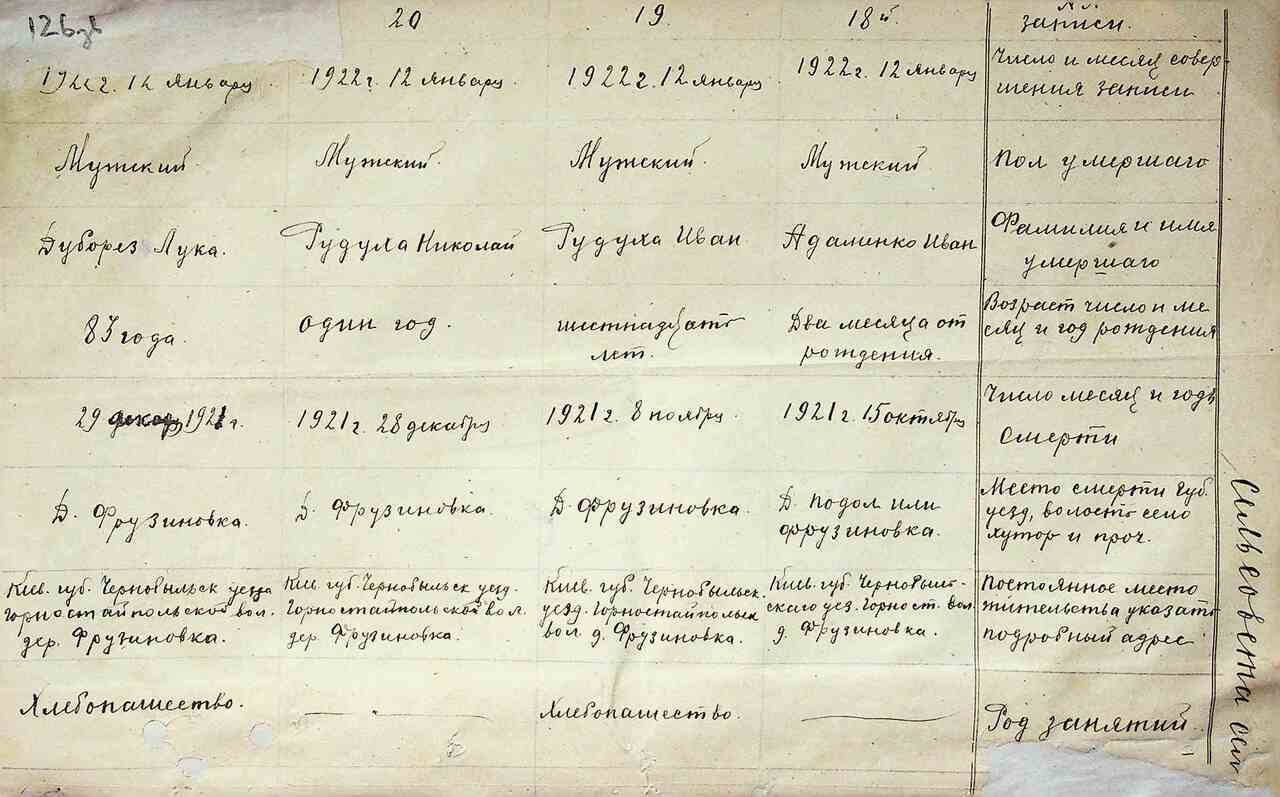 126зв
20
19.
18й.
№№
записи.
1922г. 12 январ
1922г. 12 январ
1922г. 12 январ
1922г. 12 январ
Число и месяц совер-
шения записи
Мужский.
Мужский.
Мужский.
Мужский
Пол умершаго
Дуборез Лука.
Гудула Николай
Гудуха Иван
Адаменко Иван
Фамилия и имя
умершаго
83 года.
один год.
шестнадцать
лет.
Два месяца от
рождения.
Возраст число и ме
сяц и год рождения
29 декабр 1921 г.
1921г. 28 декабр
1921г. 8 ноябр.
1921г. 15 октябр
Число месяц и годъ
смерти
Д. Фрузиновка.
Д. Фрузиновка.
Д. Фрузиновка.
Д. Подол или
Фрузиновка.
Место смерти Губ.
уезд, волость село
хутор и проч.
Киев. губ. Чернобыльск уезда
Горностайпольской вол.
дер. Фрузиновка.
Киев. губ. Чернобыльск уезд.
Горностайпольской вол.
дер. Фрузиновка.
Киев. губ. Чернобыльск.
уезд. Горностайпольск
вол. д. Фрузиновка.
Киев. губ. Чернобыль-
скаго уез. Горност. вол.
д. Фрузиновка.
Постоянное место
жительства указать
подробный адрес
Хлебопашество.
Хлебопашество.
Род занятий.
Сельсовета